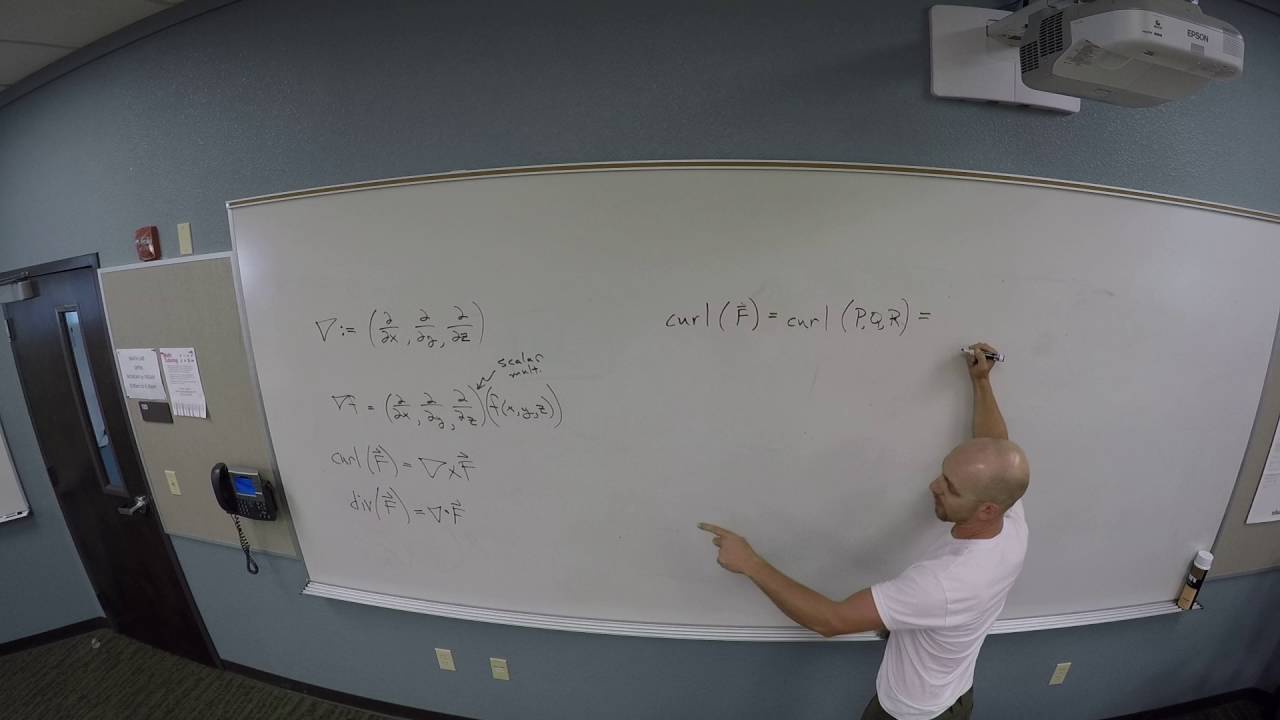 ∇ := (∂/∂x, ∂/∂y, ∂/∂z)
scalar
mult.
∇f = (∂/∂x, ∂/∂y, ∂/∂z)(f(x,y,z))
curl(F⃗) = ∇×F⃗
div(F⃗) = ∇·F⃗
curl(F⃗) = curl(P,Q,R) =
EPSON